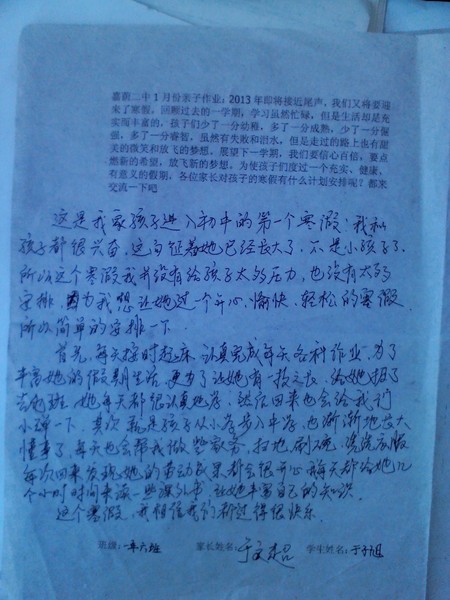 嘉荫二中1月份亲子作业:2013年即将接近尾声,我们又将要迎
来了寒假,回顾过去的一学期,学习虽然忙碌,但是生活却是充
实而丰富的,孩子们少了一分幼稚,多了一分成熟,少了一分倔
强,多了一分睿智,虽然有失败和泪水,但是走过的路上也有甜
美的微笑和放飞的梦想,展望下一学期,我们要信心百倍,要点
燃新的希望,放飞新的梦想,为使孩子们度过一个充实、健康、
有意义的假期,各位家长对孩子的寒假有什么计划安排呢?都来
交流一下吧
这是我家孩子进入初中的第一个寒假,我和
孩子都很兴奋,这向征着她已经长大了,不是小孩子了,
所以这个寒假我并没有给孩子太多压力,也没有太多
安排,因为我想让她过一个开心,愉快、轻松的寒假,
所以简单的安排一下.
首先,每天按时起床,认真完成每天各科作业,为了
丰富她的假期生活,更为了让她有一技之长,给她报了
吉他班,她每天都很认真地学,然后回来也会给我们
小弹一下,其次就是孩子从小学步入中学,也渐渐地长大
懂事了,每天也会帮我做些家务,扫地,刷碗,洗洗衣服
每次回来发现她的劳动成果都会很开心,每天都给她几
个小时时间来读一些课外书,让她丰富自己的知识.
这个寒假,我相信我们都过得很快乐.
班级:一年六班 家长姓名: 学生姓名:于子旭